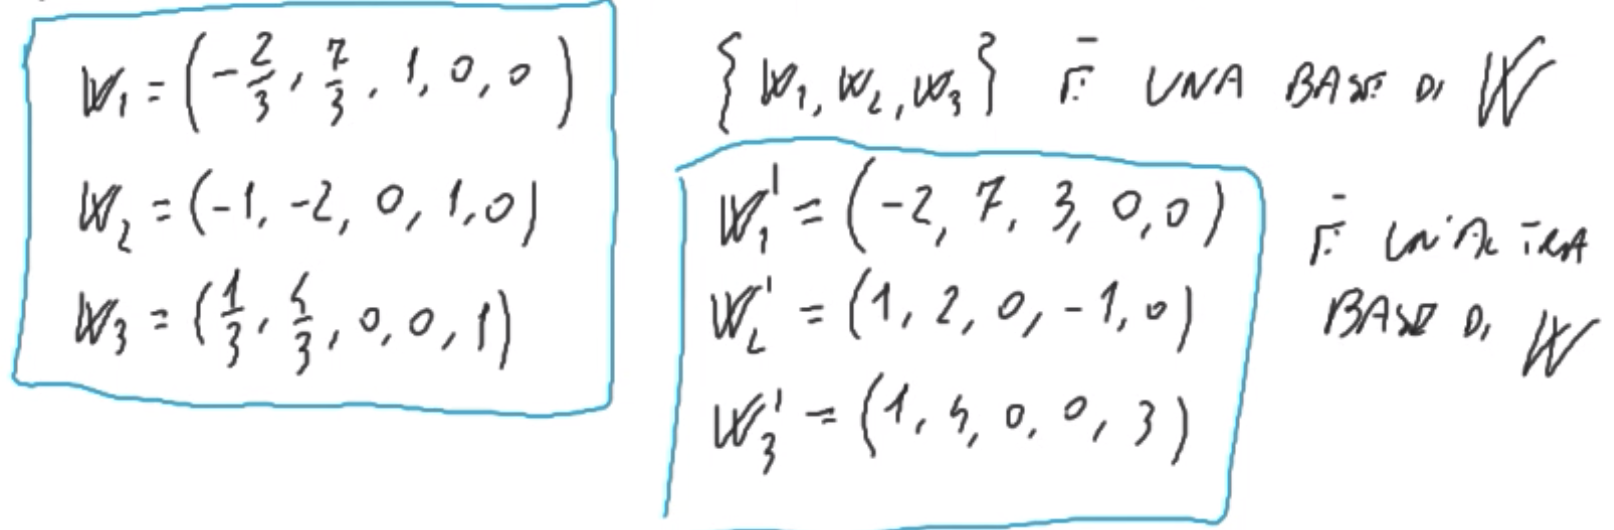 W₁ = (-2/3, 7/3, 1, 0, 0)
W₂ = (-1, -2, 0, 1, 0)
W₃ = (1/3, 5/3, 0, 0, 1)
{W₁, W₂, W₃} È UNA BASE DI W
W₁' = (-2, 7, 3, 0, 0)
W₂' = (1, 2, 0, -1, 0)
W₃' = (1, 5, 0, 0, 3)
È UN'ALTRA
BASE DI W